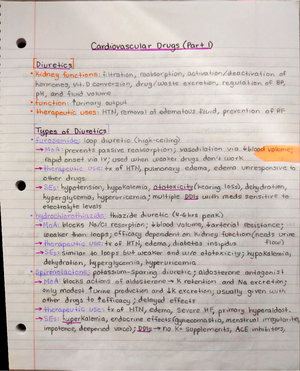 Cardiovascular Drugs (Part 1)
Diuretics
• kidney functions: filtration, reabsorption, activation/deactivation of
hormones, vit. D conversion, drug/waste excretion, regulation of BP,
pH, and fluid volume
• function: ↑urinary output
• therapeutic uses: HTN, removal of edematous fluid, prevention of RF
Types of Diuretics:
furosemide: loop diuretic (high-ceiling)
→ MoA: prevents passive reabsorption; vasodilation via ↓blood volume;
rapid onset via IV; used when weaker drugs don't work
→ therapeutic use: tx of HTN, pulmonary edema, edema unresponsive to
other drugs
→ SEs: hypotension, hypokalemia, ototoxicity (hearing loss), dehydration,
hyperglycemia, hyperuricemia; multiple DDIs with meds sensitive to
electrolyte levels
hydrochlorothiazide: thiazide diuretic (4-6hrs peak)
→ MoA: blocks Na/Cl resorption; ↓blood volume, ↓arterial resistance;
weaker than loops; efficacy dependent on kidney function (needs urine
flow)
→ therapeutic use: tx of HTN, edema, diabetes insipidus
→ SEs: Similar to loops but weaker and w/o ototoxicity; hypokalemia,
dehydration, hyperglycemia, hyperuricemia
Spironolactone: potassium-sparing diuretic; aldosterone antagonist
→ MoA: blocks actions of aldosterone → K retention and Na excretion;
only modest ↑urine production and ↓K excretion; usually given with
other drugs to ↑efficacy; delayed effects
→ therapeutic uses: tx of HTN, edema, severe HF, primary hyperaldost.
→ SEs: hyperkalemia, endocrine effects (gynecomastia, menstrual irregularities,
impotence, deepened voice); DDIs → no K+ supplements, ACE inhibitors,